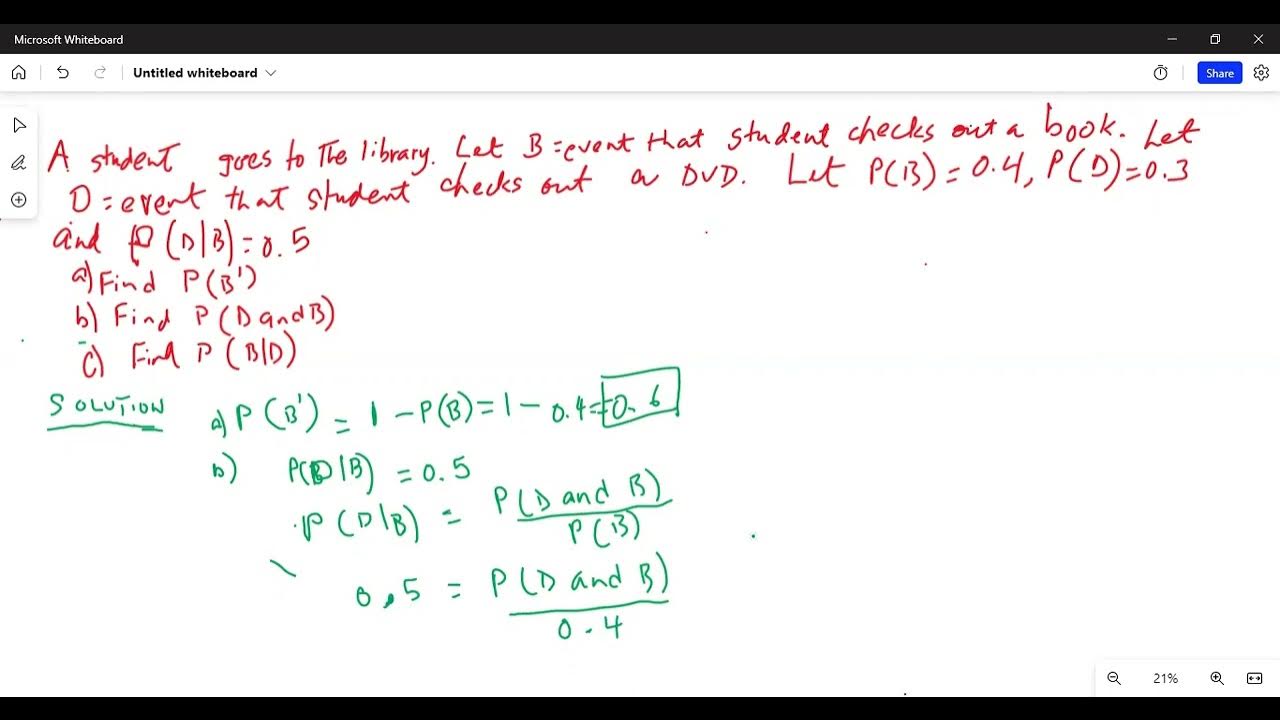 Microsoft Whiteboard
Untitled whiteboard
Share
A student goes to The library. Let B = event that student checks out a book. Let
D = event that student checks out a DVD. Let P(B) = 0.4, P(D) = 0.3
and P(D|B) = 0.5
a) Find P(B')
b) Find P(D and B)
c) Find P(B|D)
SOLUTION
a) P(B') = 1 - P(B) = 1 - 0.4 = 0.6
b) P(D|B) = 0.5
P(D|B) = P(D and B)
P(B)
0.5 = P(D and B)
0.4
21%